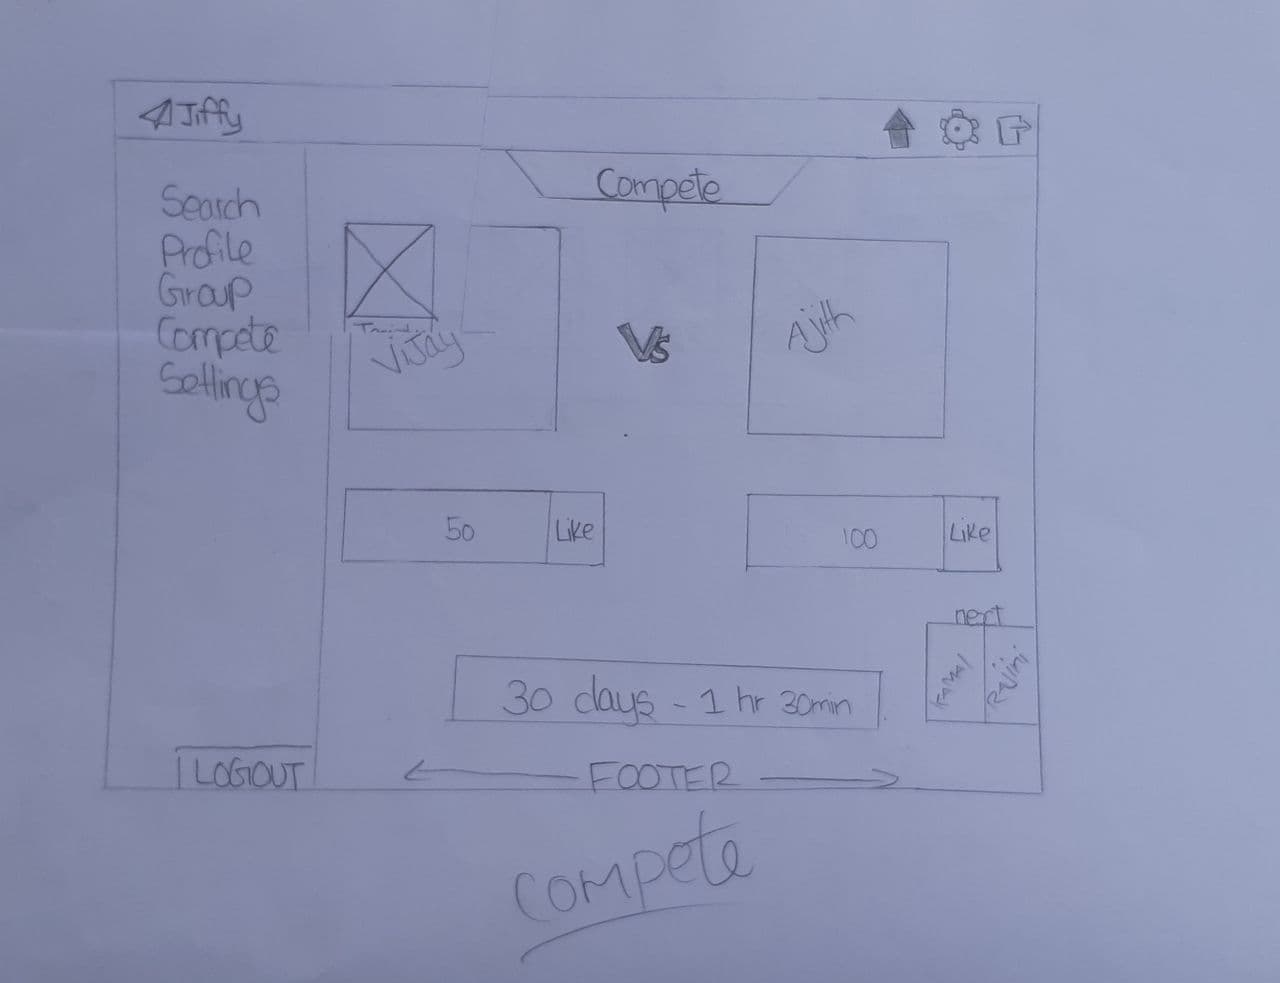 Jiffy
Compete
Search
Profile
Group
Compete
Settings
Vijay
Vs
Ajith
50
Like
100
Like
next
Rajini
30 days - 1 hr 30min
LOGOUT
FOOTER
compete